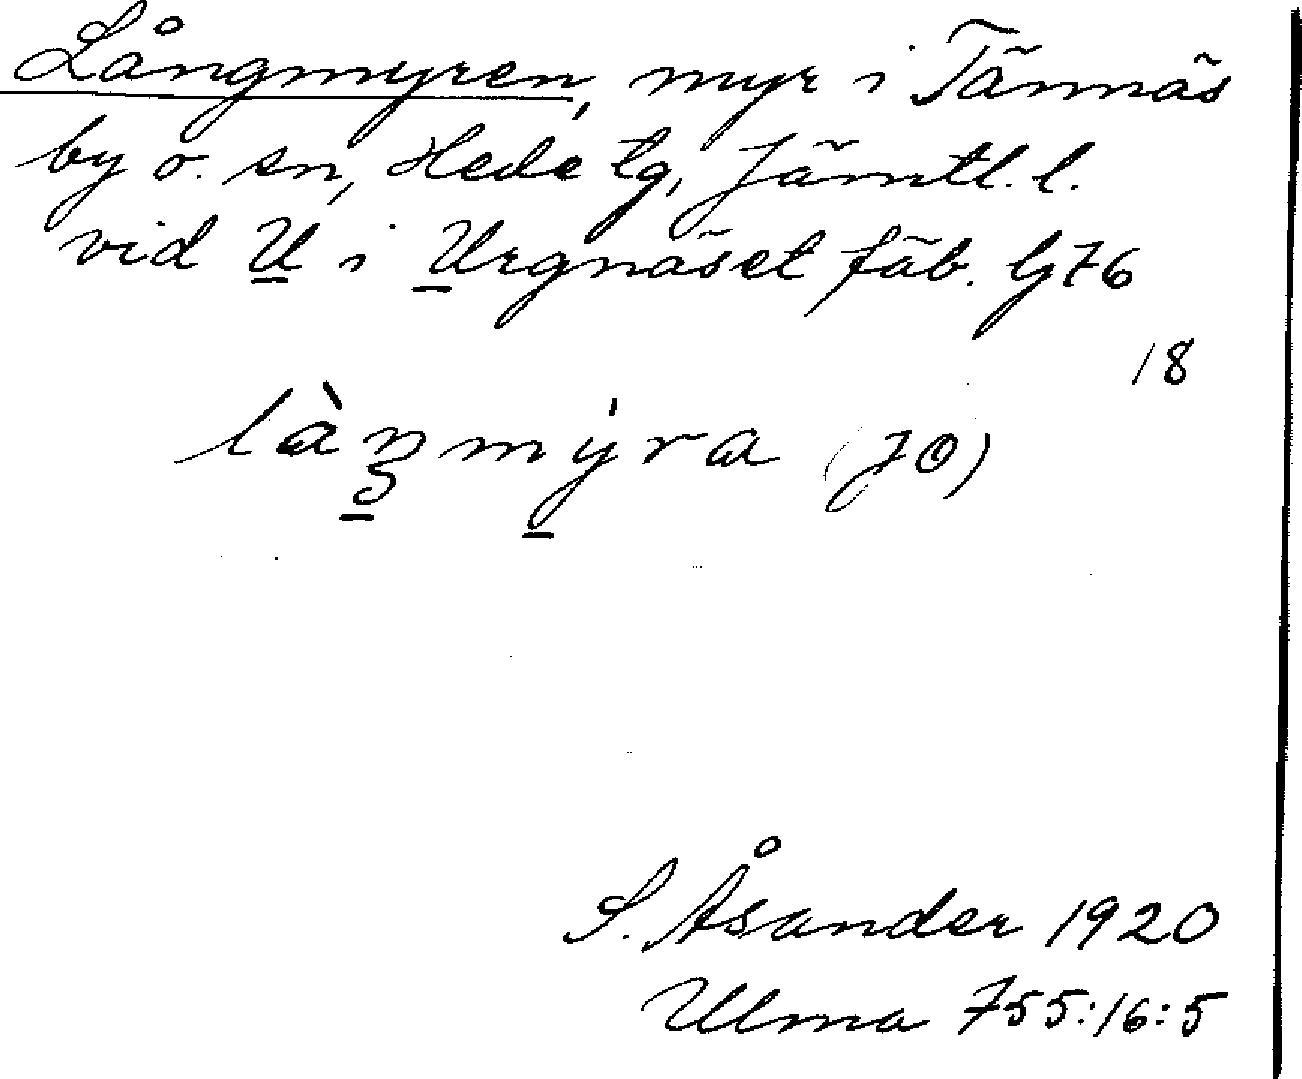 Långmyren, myr i Tännäs
by o. sn, Hede tg, Jämtl. l.
vid U i Urgnäset fäb. Gj 76
18
làŋmýra (JO)
S. Åsander 1920
Ulma 755:16:5